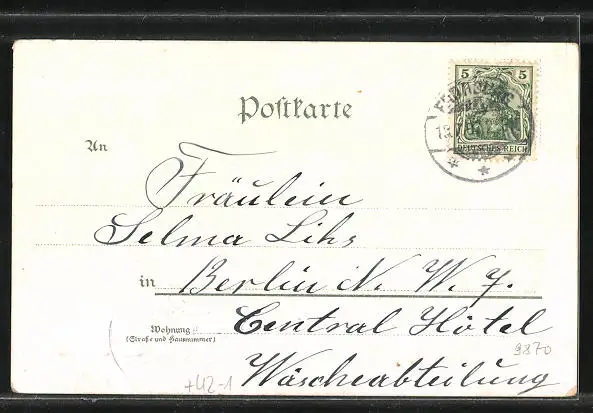 Postkarte
5 5
DEUTSCHES REICH
An
Fräulein
Selma Lihs
in Berlin N. W. 7.
Central Hôtel
Wohnung
(Straße und Hausnummer)
9870
Wäscheabteilung
+42-1